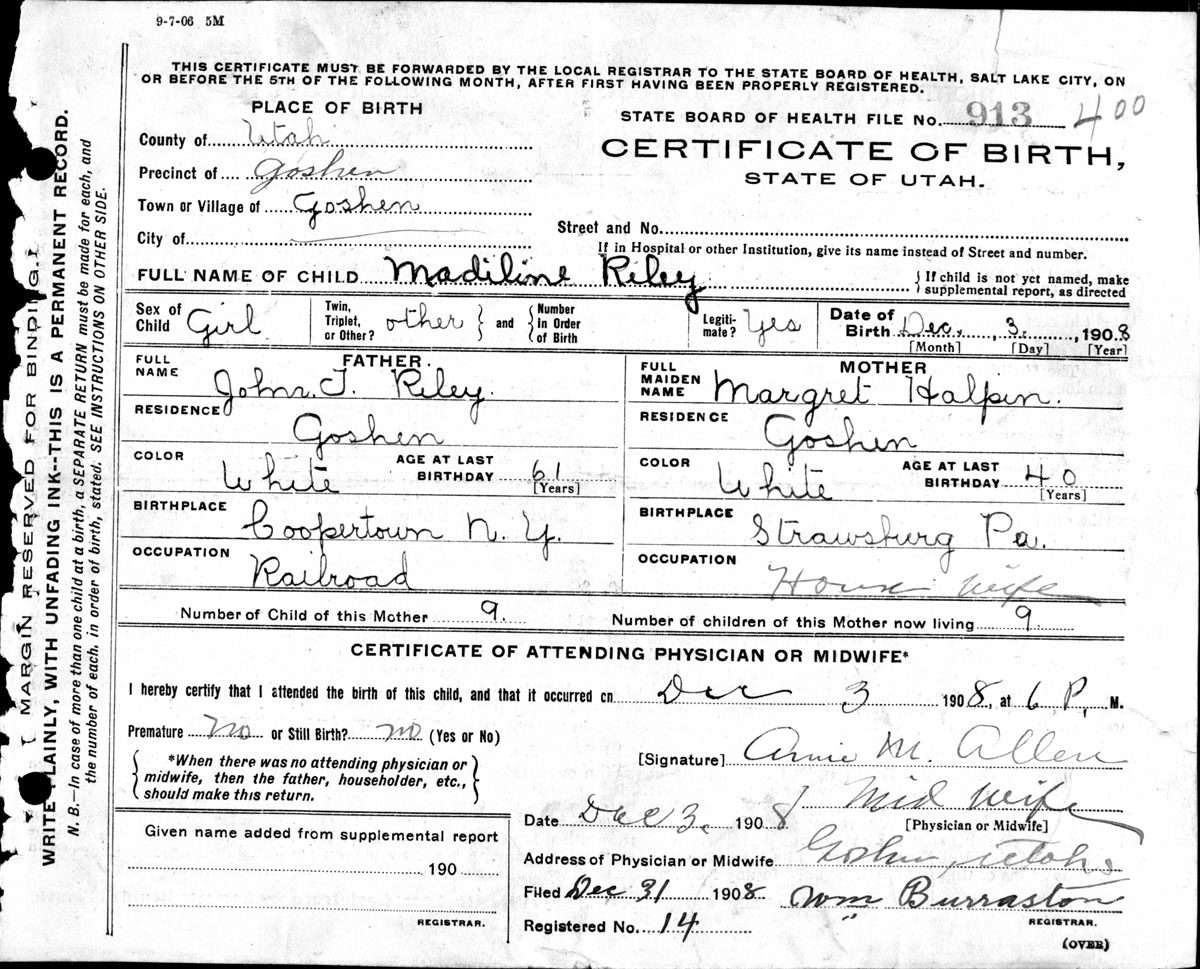 9-7-06 5M
THIS CERTIFICATE MUST BE FORWARDED BY THE LOCAL REGISTRAR TO THE STATE BOARD OF HEALTH, SALT LAKE CITY, ON
OR BEFORE THE 5TH OF THE FOLLOWING MONTH, AFTER FIRST HAVING BEEN PROPERLY REGISTERED.
PLACE OF BIRTH
STATE BOARD OF HEALTH FILE No. 913 400
County of Utah
CERTIFICATE OF BIRTH,
STATE OF UTAH.
Precinct of Goshen
Town or Village of Goshen
Street and No.
City of
If in Hospital or other Institution, give its name instead of Street and number.
FULL NAME OF CHILD Madiline Riley
{If child is not yet named, make
supplemental report, as directed
Sex of Child Girl
Twin, Triplet, or Other? other } and { Number in Order of Birth
Legitimate? Yes
Date of Birth Dec. 3. 1908
[Month] [Day] [Year]
FATHER.
FULL NAME John. T. Riley.
RESIDENCE Goshen
COLOR White
AGE AT LAST BIRTHDAY 61
[Years]
BIRTHPLACE Coopertown N. Y.
OCCUPATION Railroad
MOTHER
FULL MAIDEN NAME Margret Halpin.
RESIDENCE Goshen
COLOR White
AGE AT LAST BIRTHDAY 40
[Years]
BIRTHPLACE Strawsburg Pa.
OCCUPATION House wife
Number of Child of this Mother 9.
Number of children of this Mother now living 9.
CERTIFICATE OF ATTENDING PHYSICIAN OR MIDWIFE*
I hereby certify that I attended the birth of this child, and that it occurred on Dec 3 1908, at 6 P. M.
Premature No or Still Birth? no (Yes or No)
{*When there was no attending physician or
midwife, then the father, householder, etc.,
should make this return.}
[Signature] Annie M. Allen
Mid wife
[Physician or Midwife]
Date Dec 3. 1908
Address of Physician or Midwife Goshen, Utah
Given name added from supplemental report
190
REGISTRAR.
Filed Dec 31 1908 Wm Burraston
REGISTRAR.
Registered No. 14
(OVER)
MARGIN RESERVED FOR BINDING.
WRITE PLAINLY, WITH UNFADING INK--THIS IS A PERMANENT RECORD.
N. B.—In case of more than one child at a birth, a SEPARATE RETURN must be made for each, and
the number of each, in order of birth, stated. SEE INSTRUCTIONS ON OTHER SIDE.